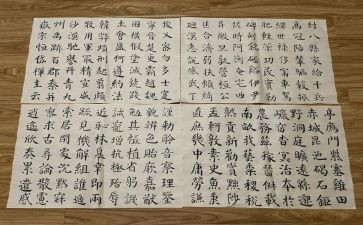 封八縣家給千兵
高冠陪輦驅轂振
纓世祿侈富車駕
肥輕策功茂實勒
碑刻銘磻溪伊尹
佐時阿衡奄宅曲
阜微旦孰營桓公
匡合濟弱扶傾綺
迴漢惠說感武丁
俊乂密勿多士寔
寧晉楚更霸趙魏
困橫假途滅虢踐
土會盟何遵約法
韓弊煩刑起翦頗
牧用軍最精宣威
沙漠馳譽丹青九
州禹跡百郡秦并
嶽宗恒岱禪主云
亭雁門紫塞雞田
赤城昆池碣石鉅
野洞庭曠遠緜邈
巖岫杳冥治本於
農務茲稼穡俶載
南畝我藝黍稷稅
熟貢新勸賞黜陟
孟軻敦素史魚秉
直庶幾中庸勞謙
謹勑聆音察理鑒
貌辨色貽厥嘉猷
勉其祗植省躬譏
誡寵增抗極殆辱
近恥林皋幸即兩
疏見機解組誰逼
索居閒處沉默寂
寥求古尋論散慮
逍遙欣奏累遣慼